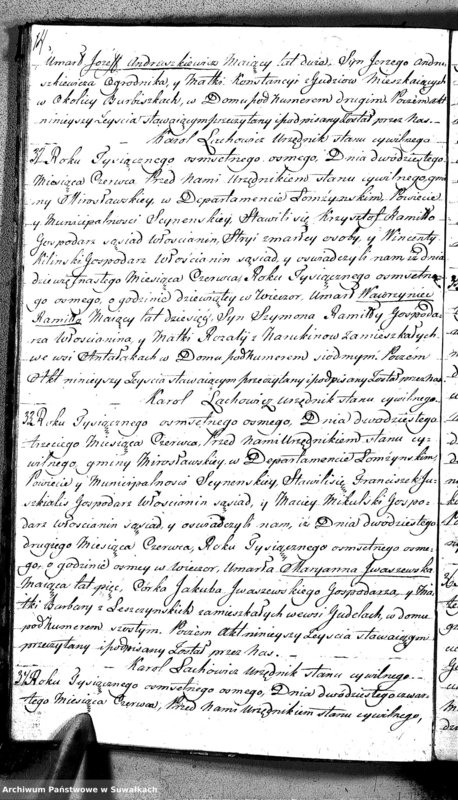 14
Umarł Jozeff Andruszkiewicz Maiący lat dwa, Syn Jerzego Andru
szkiewicza Ogrodnika, y Matki Konstancyi z Gudziow Mieszkaiących
w Okolicy Burbiszkach, w Domu pod Numerem drugim. Poczem Akt
ninieyszy Zeyścia stawaiącym przeczytany i podpisany został przez nas.
Karol Lachowicz Urzędnik stanu cywilnego
32 Roku Tysiącznego osmsetnego osmego, Dnia dwudziestego
Miesiąca Czerwca Przed Nami Urzędnikiem stanu cywilnego gmi
ny Mirosławskiey, w Departamencie Łomzynskim, Powiecie
y Municipalnosci Seynenskiey, Stawili się Krzysztof Ramiłło
Gospodarz sąsiad Włoscianin, Stryi zmarłey osoby, y Wincenty
Milinski Gospodarz Włoscianin sąsiad, y oswiadczyli nam iż dnia
dziewiętnastego Miesiąca Czerwca, Roku Tysiącznego osmsetne
go osmego, o godzinie dziewiątey w Wieczor, Umarł Wawrzyniec
Ramiłło Maiący lat dziesięć, Syn Szymona Ramiłły Gospoda
rza Włoscianina, y Matki Rozalij z Narukinow zamieszkałych
we wsi Antalickach w Domu pod Numerem siodmym. Poczem
Akt ninieyszy Zeyscia stawaiącym przeczytany i podpisany został przez nas.
Karol Lachowicz Urzędnik stanu cywilnego
33 Roku Tysiącznego osmsetnego osmego, Dnia dwudziestego
trzeciego Miesiąca Czerwca, Przed Nami Urzędnikiem stanu cy-
wilnego gminy Mirosławskiey, w Departamencie Łomzynskim,
Powiecie y Municipalnosci Seynenskiey, Stawili się Franciszek Ju-
szkialis Gospodarz Włoscianin sąsiad, y Maciey Mikulski Gospo-
darz Włoscianin sąsiad, y oswiadczyli nam, iż Dnia dwudziestego
drugiego Miesiąca Czerwca, Roku Tysiącznego osmsetnego osme-
go, o godzinie osmey w Wieczor, Umarła Maryanna Iwaszewska
Maiąca lat pięć, Corka Jakuba Iwaszewskiego Gospodarza, y Ma-
tki Barbary z Leszczynskich zamieszkałych we wsi Gudelach, w domu
pod Numerem szostym. Poczem Akt ninieyszy Zeyscia stawaiącym
przeczytany i podpisany został przez nas.
Karol Lachowicz Urzędnik stanu cywilnego
34 Roku Tysiącznego osmsetnego osmego, Dnia dwudziestego czwar-
tego Miesiąca Czerwca, Przed Nami Urzędnikiem stanu cywilnego,
Archiwum Państwowe w Suwałkach